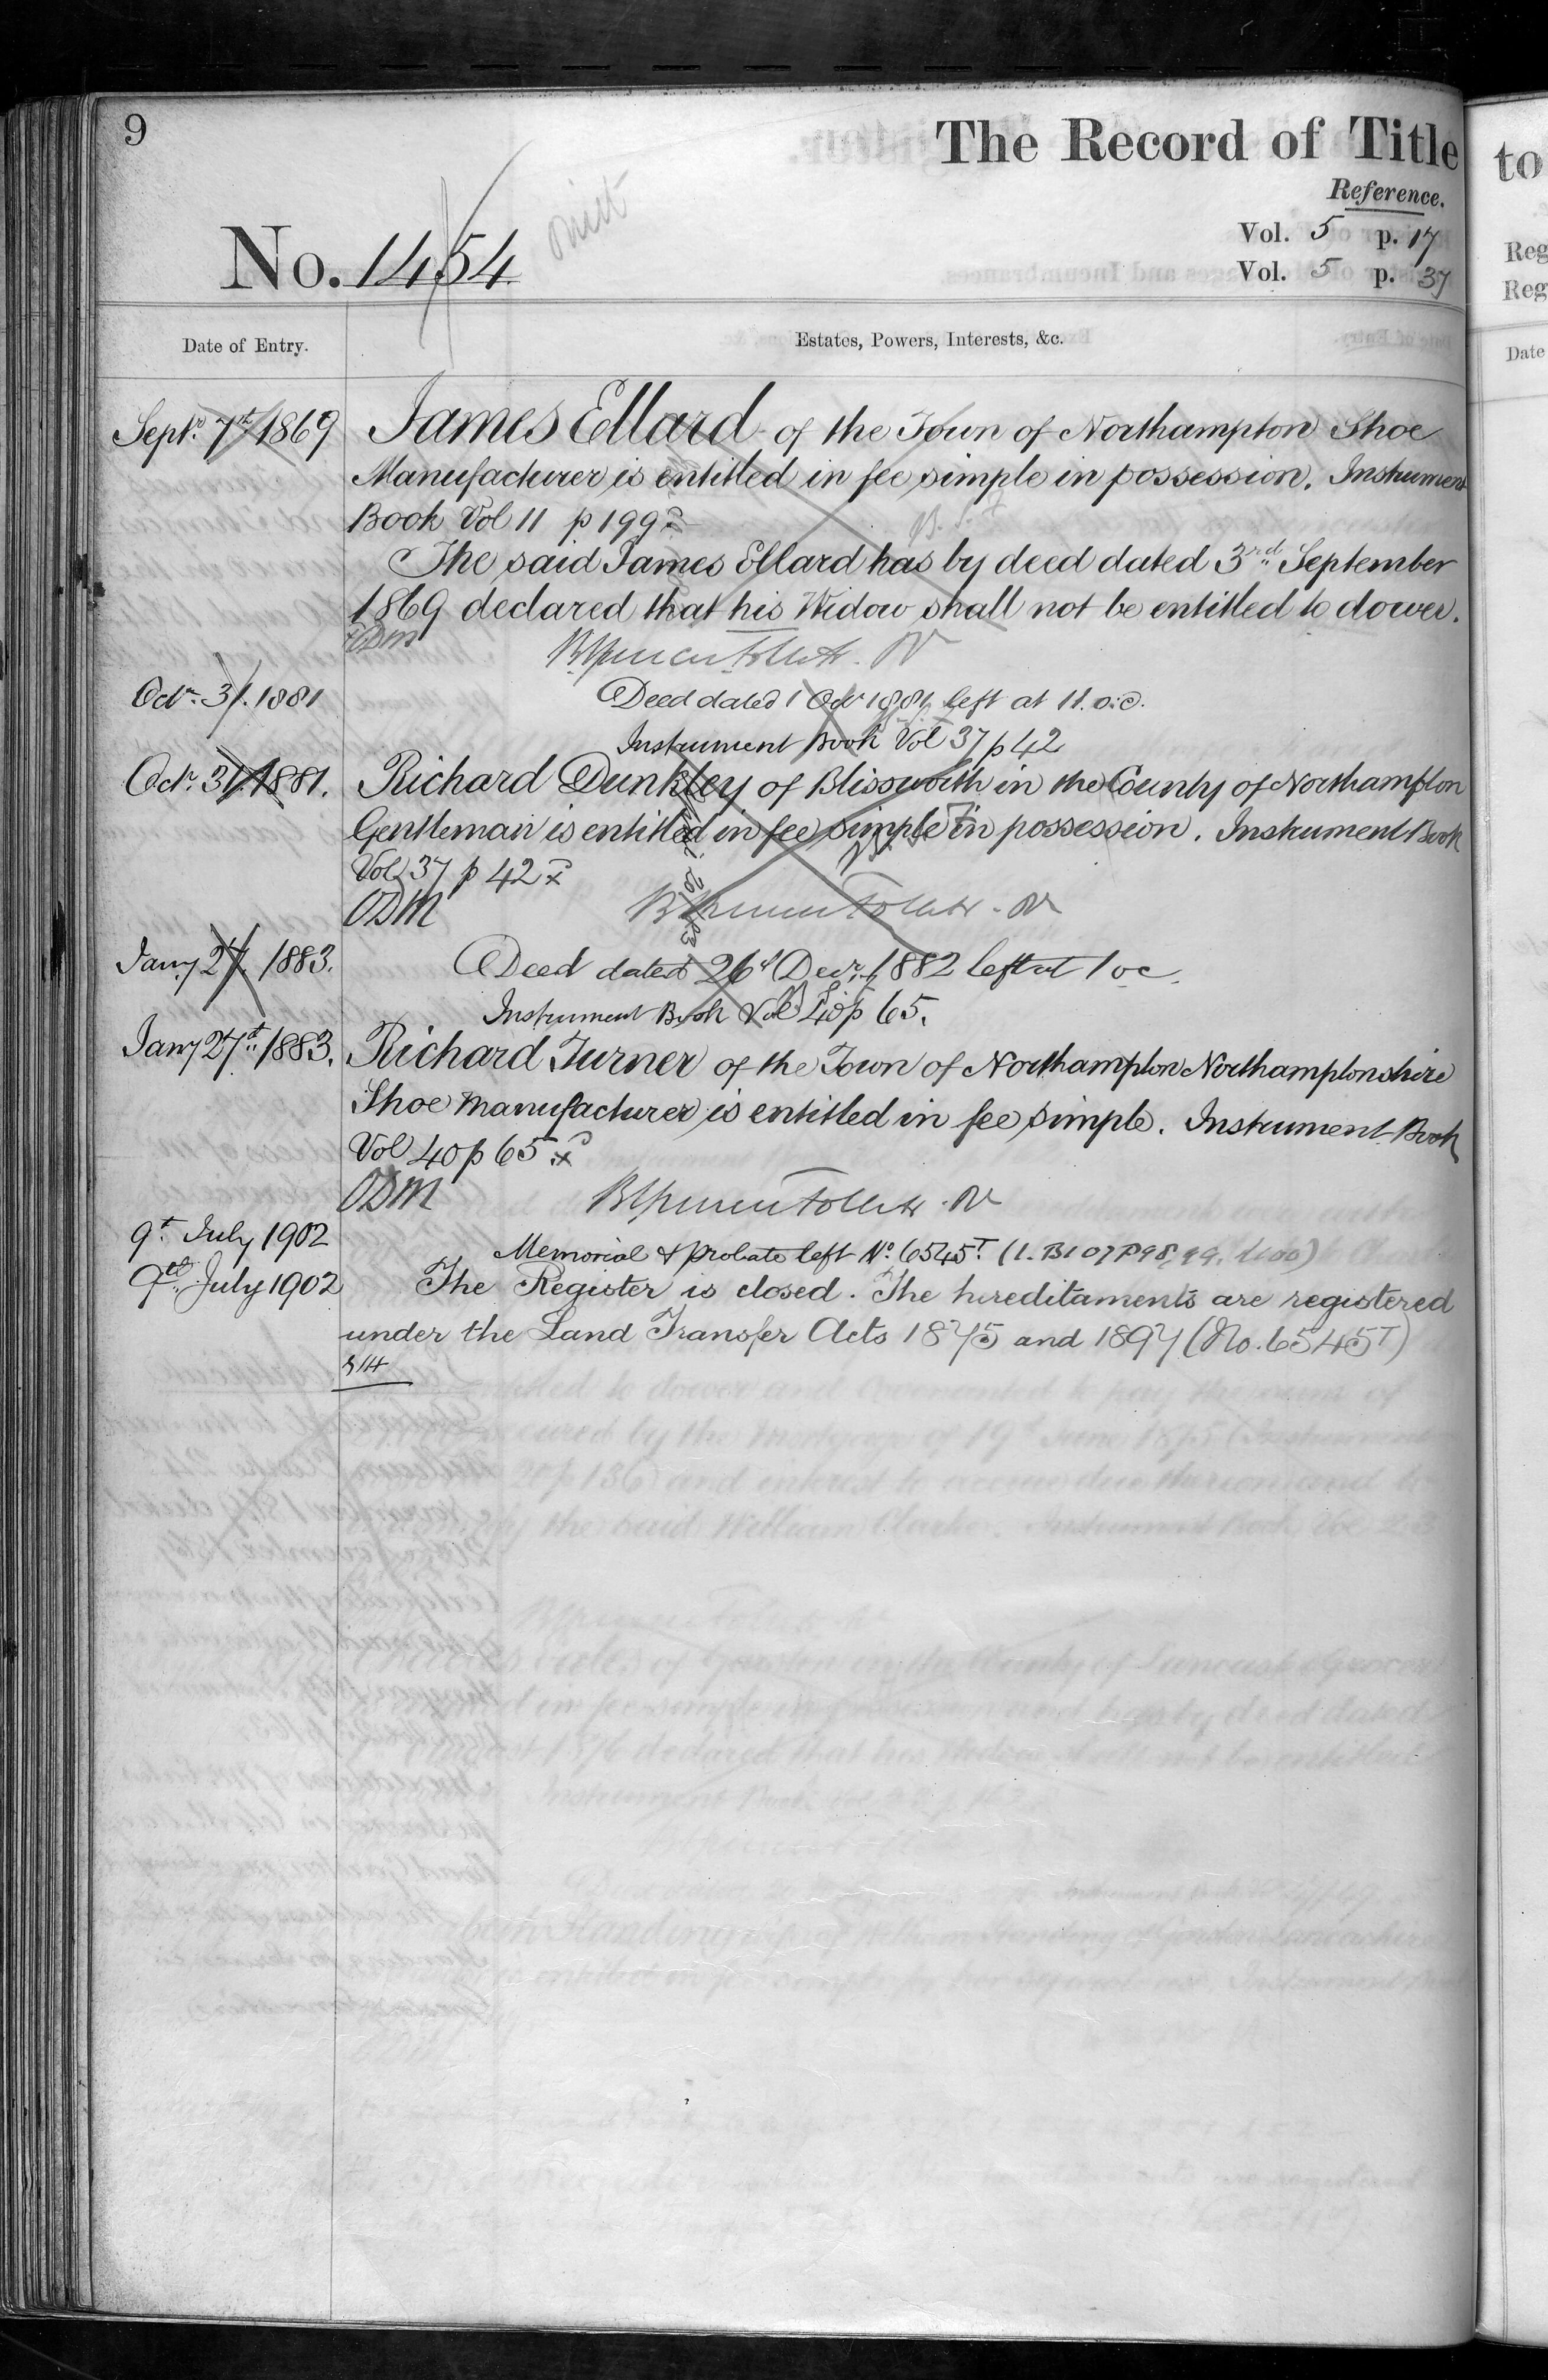 9
The Record of Title
Reference.
Vol. 5 p. 17
No. 1454
Vol. 5 p. 37
Date of Entry.
Estates, Powers, Interests, &c.
Septr. 7th 1869
James Ellard of the Town of Northampton Shoe
Manufacturer is entitled in fee simple in possession. Instrument
Book Vol 11 p 199
The said James Ellard has by deed dated 3rd September
1869 declared that his Widow shall not be entitled to dower.
Octr. 31. 1881
Deed dated 1 Octr 1881 left at 11. o.c.
Instrument Book Vol 37 p 42
Octr. 31. 1881.
Richard Dunkley of Blissworth in the County of Northampton
Gentleman is entitled in fee simple in possession. Instrument Book
Vol 37 p 42
ODM
Jany 27. 1883.
Deed dated 26th Decr. 1882 left at 1 oc.
Instrument Book Vol 40 p 65.
Jany 27th. 1883.
Richard Turner of the Town of Northampton Northamptonshire
Shoe manufacturer is entitled in fee simple. Instrument Book
Vol 40 p 65
ODM
9th July 1902
Memorial & probate left No. 6545T
9th. July 1902
The Register is closed. The hereditaments are registered
under the Land Transfer Acts 1875 and 1897 (No. 6545T)
to
Reg
Reg
Date